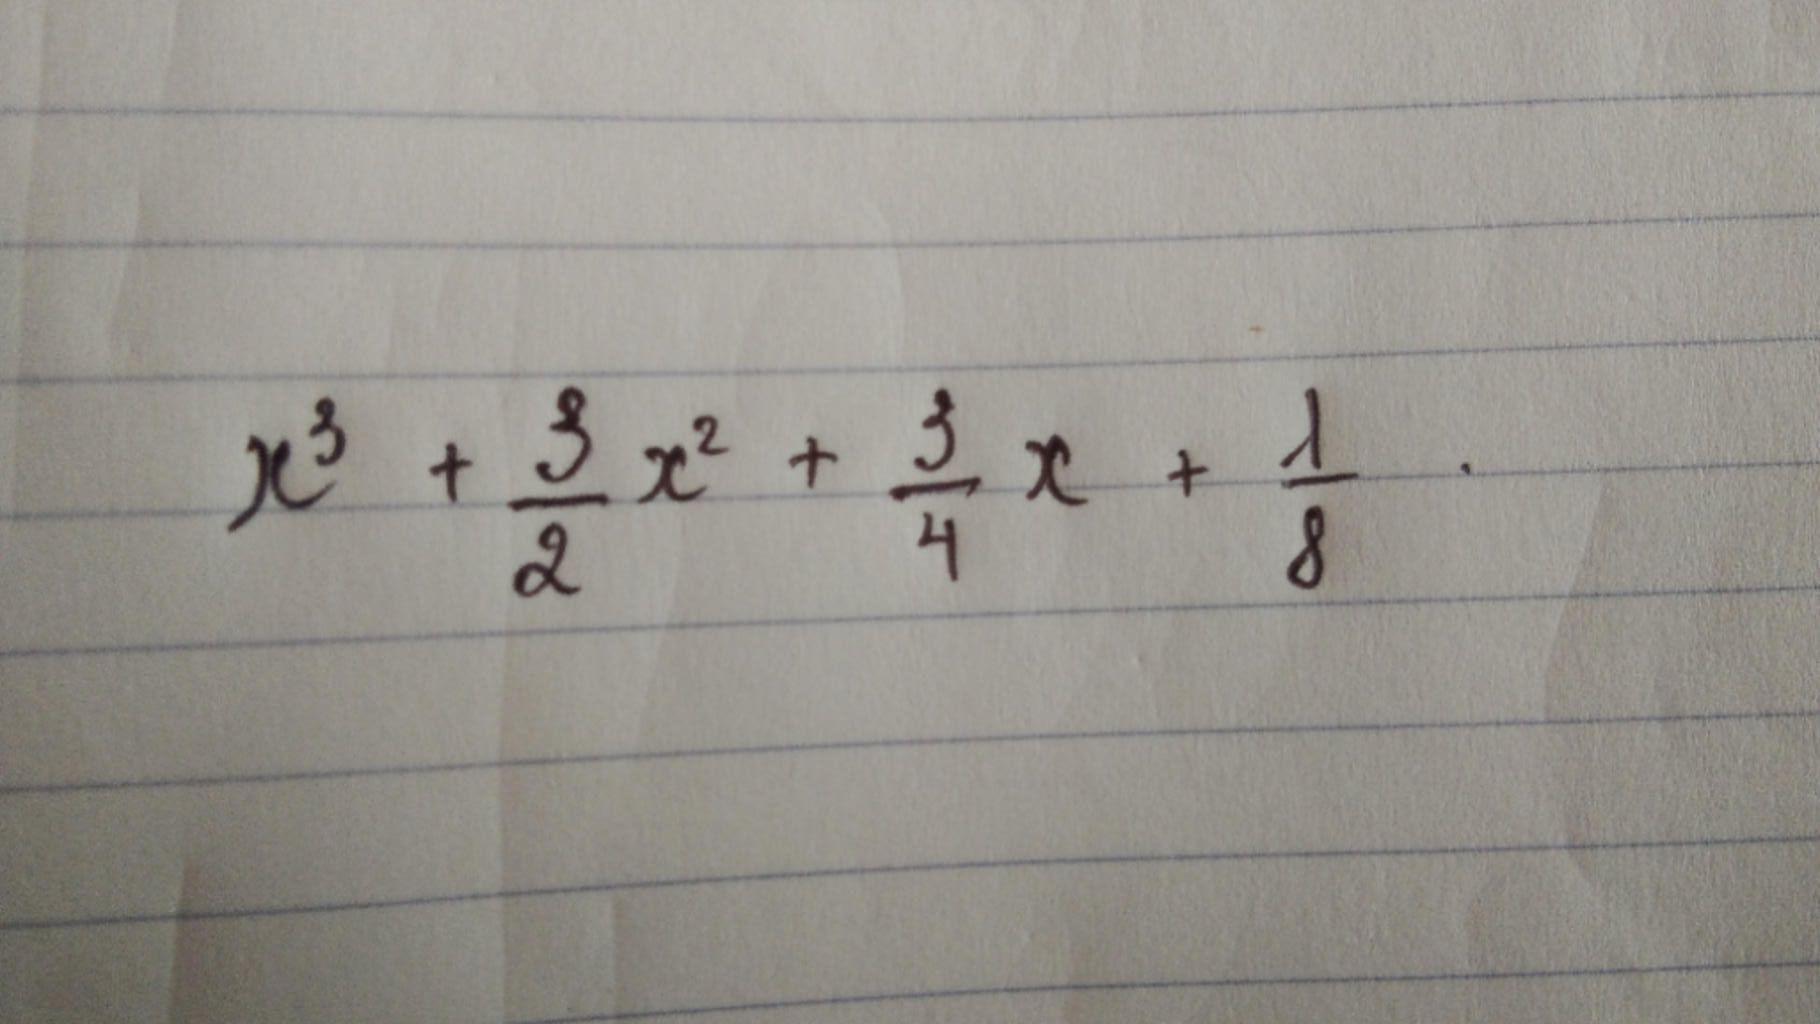 x³ + 3/2 x² + 3/4 x + 1/8 .